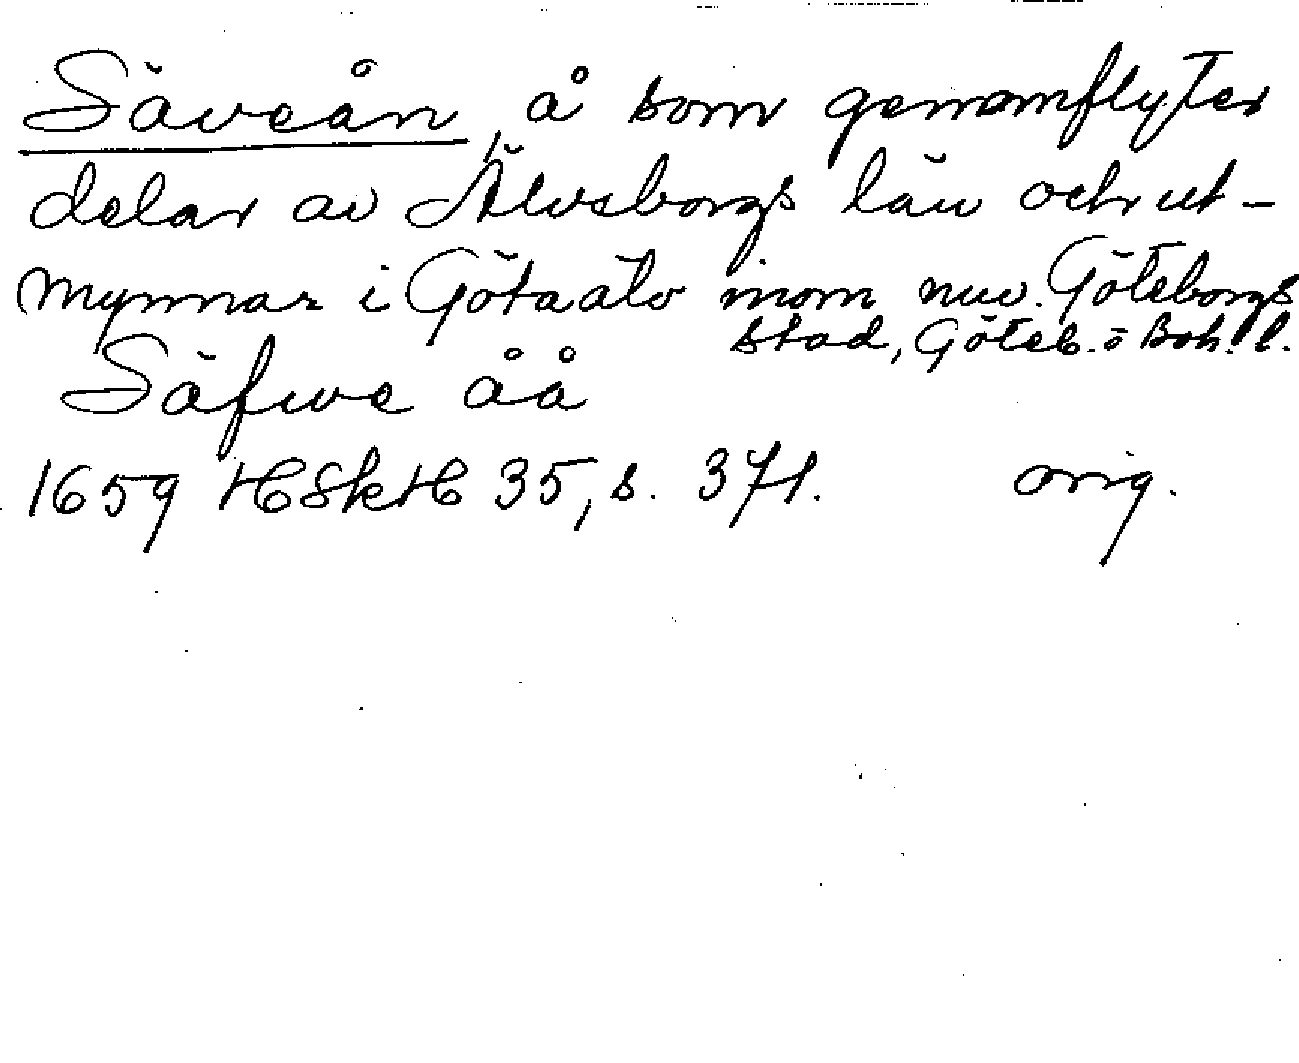 Säveån, å som genomflyter
delar av Älvsborgs län och ut-
mynnar i Göta älv inom nuv. Göteborgs
stad, Göteb. o Boh. l.
Säfwe åå
1659 HSkH 35, s. 371. orig.